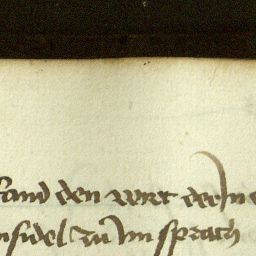 fand den wirt der in
insidel zu im sprach